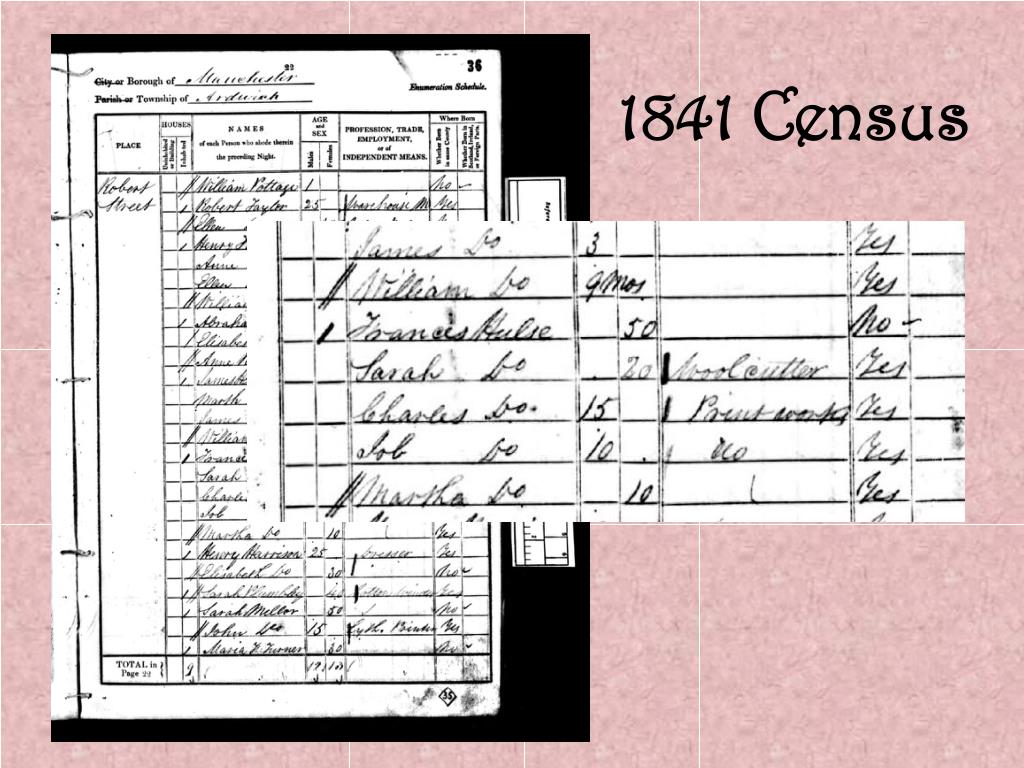 1841 Census
22
36
City or Borough of Manchester
Enumeration Schedule.
Parish or Township of Ardwick
PLACE
HOUSES
Uninhabited or Building
Inhabited
NAMES
of each Person who abode therein
the preceding Night.
AGE
and
SEX
Males
Females
PROFESSION, TRADE,
EMPLOYMENT,
or of
INDEPENDENT MEANS.
Where Born
Whether Born in same County
Whether Born in Scotland, Ireland, or Foreign Parts.
Robert Street
William Pottage 1 No
1 Robert Taylor 25 Warehouse M Yes
Ellen
1 Henry
Anne
Ellen
William
1 Abraha
1 Elizabe
Anne
1 James
Marth
James
William
1 France
Sarah
Charle
Job
James Do 3 Yes
William Do 9 Mos Yes
1 Frances Hulse 50 No
Sarah Do 20 Woolcutter Yes
Charles Do. 15 Print works Yes
Job Do 10 do Yes
Martha Do 10 Yes
Martha Do 10 Yes
1 Henry Harrison 25 Dresser Yes
Elizabeth Do 30 No
1 Sarah
1 Sarah Mellor 50 No
John Do 15 Yes
1 Maria Turner 30 No
TOTAL in Page 22 9
35